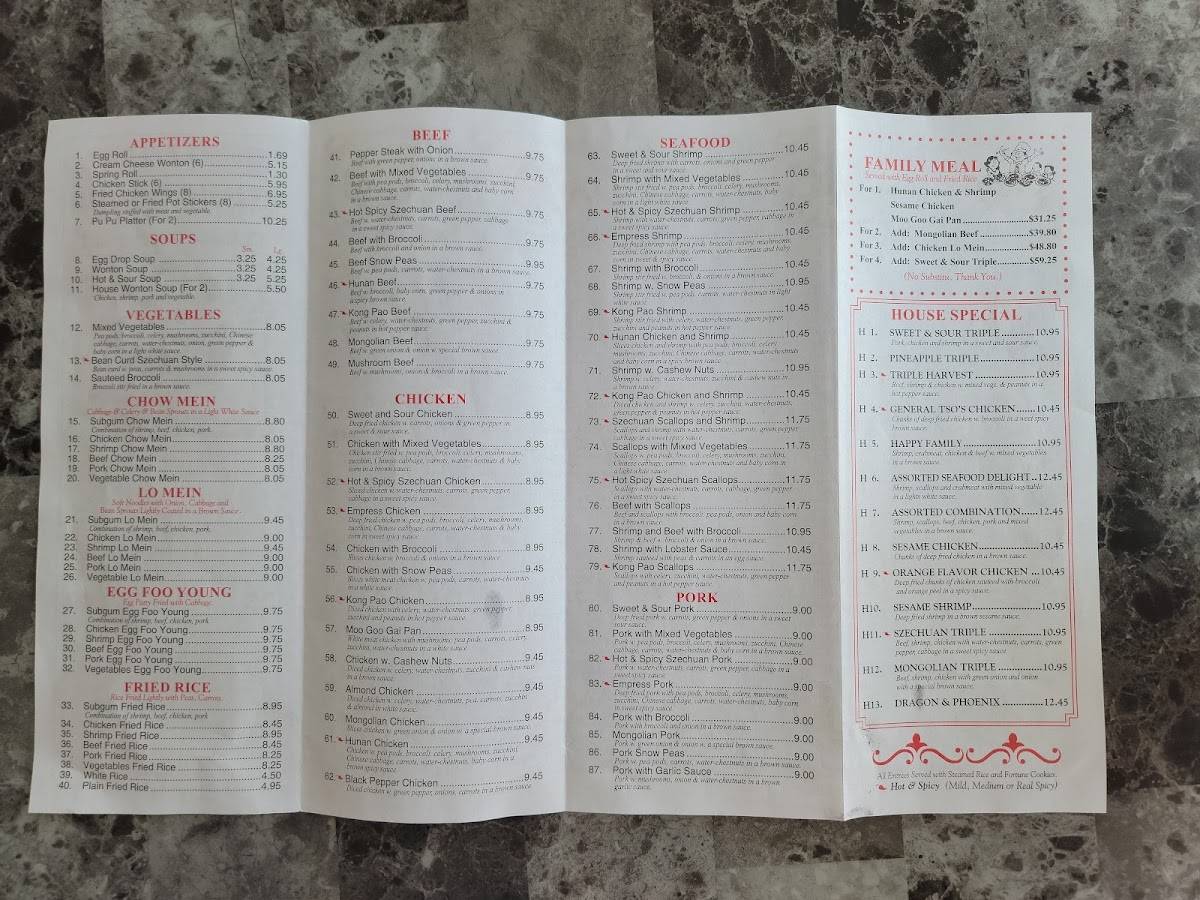 APPETIZERS
1. Egg Roll 1.69
2. Cream Cheese Wonton (6) 5.15
3. Spring Roll 1.30
4. Chicken Stick (6) 5.95
5. Fried Chicken Wings (8) 6.95
6. Steamed or Fried Pot Stickers (8) 5.25
Dumpling stuffed with meat and vegetable.
7. Pu Pu Platter (For 2) 10.25
SOUPS
Sm. Lg.
8. Egg Drop Soup 3.25 4.25
9. Wonton Soup 3.25 4.25
10. Hot & Sour Soup 3.25 5.25
11. House Wonton Soup (For 2) 5.50
Chicken, shrimp, pork and vegetable.
VEGETABLES
12. Mixed Vegetables 8.05
Pea pods, broccoli, celery, mushrooms, zucchini, Chinese
cabbage, carrots, water-chestnuts, onion, green pepper &
baby corn in a light white sauce.
13. Bean Curd Szechuan Style 8.05
Bean curd w. peas, carrots & mushrooms in a sweet spicy sauce.
14. Sauteed Broccoli 8.05
Broccoli stir fried in a brown sauce.
CHOW MEIN
Cabbage & Celery & Bean Sprouts in a Light White Sauce
15. Subgum Chow Mein 8.80
Combination of shrimp, beef, chicken, pork.
16. Chicken Chow Mein 8.05
17. Shrimp Chow Mein 8.80
18. Beef Chow Mein 8.25
19. Pork Chow Mein 8.05
20. Vegetable Chow Mein 8.05
LO MEIN
Soft Noodles with Onion, Cabbage and
Bean Sprouts Lightly Coated in a Brown Sauce
21. Subgum Lo Mein 9.45
Combination of shrimp, beef, chicken, pork.
22. Chicken Lo Mein 9.00
23. Shrimp Lo Mein 9.45
24. Beef Lo Mein 9.00
25. Pork Lo Mein 9.00
26. Vegetable Lo Mein 9.00
EGG FOO YOUNG
Egg Patty Fried with Cabbage.
27. Subgum Egg Foo Young 9.75
Combination of shrimp, beef, chicken, pork.
28. Chicken Egg Foo Young 9.75
29. Shrimp Egg Foo Young 9.75
30. Beef Egg Foo Young 9.75
31. Pork Egg Foo Young 9.75
32. Vegetables Egg Foo Young 9.75
FRIED RICE
Rice Fried Lightly with Peas, Carrots.
33. Subgum Fried Rice 8.95
Combination of shrimp, beef, chicken, pork
34. Chicken Fried Rice 8.45
35. Shrimp Fried Rice 8.95
36. Beef Fried Rice 8.45
37. Pork Fried Rice 8.25
38. Vegetables Fried Rice 8.25
39. White Rice 4.50
40. Plain Fried Rice 4.95
BEEF
41. Pepper Steak with Onion 9.75
Beef with green pepper, onions in a brown sauce.
42. Beef with Mixed Vegetables 9.75
Beef with pea pods, broccoli, celery, mushrooms, zucchini,
Chinese cabbage, carrots, water-chestnuts and baby corn
in a brown sauce.
43. Hot Spicy Szechuan Beef 9.75
Beef w. water-chestnuts, carrots, green pepper, cabbage
in a sweet spicy sauce.
44. Beef with Broccoli 9.75
Beef with broccoli and onion in a brown sauce.
45. Beef Snow Peas 9.95
Beef w. pea pods, carrots, water-chestnuts in a brown sauce.
46. Hunan Beef 9.75
Beef w. broccoli, baby corn, green pepper & onions in
a spicy brown sauce.
47. Kong Pao Beef 9.75
Beef w. celery, water-chestnuts, green pepper, zucchini &
peanuts in hot pepper sauce.
48. Mongolian Beef 9.75
Beef w. green onion & onion w. special brown sauce.
49. Mushroom Beef 9.75
Beef w. mushrooms, onion & broccoli in a brown sauce.
CHICKEN
50. Sweet and Sour Chicken 8.95
Deep fried chicken w. carrots, onions & green pepper in
a sweet & sour sauce.
51. Chicken with Mixed Vegetables 8.95
Chicken stir fried w. pea pods, broccoli, celery, mushrooms,
zucchini, Chinese cabbage, carrots, water-chestnuts & baby
corn in a brown sauce.
52. Hot & Spicy Szechuan Chicken 8.95
Sliced chicken w. water-chestnuts, carrots, green pepper,
cabbage in a sweet spicy sauce.
53. Empress Chicken 8.95
Deep fried chicken w. pea pods, broccoli, celery, mushrooms,
zucchini, Chinese cabbage, carrots, water-chestnuts & baby
corn in a sweet spicy sauce.
54. Chicken with Broccoli 8.95
Sliced chicken w. broccoli & onions in a brown sauce.
55. Chicken with Snow Peas 9.45
Slices white meat chicken w. pea pods, carrots, water-chestnuts
in a white sauce.
56. Kong Pao Chicken 8.95
Diced chicken with celery, water-chestnuts, green pepper,
zucchini and peanuts in hot pepper sauce.
57. Moo Goo Gai Pan 8.95
White meat chicken with mushrooms, pea pods, carrots, celery,
zucchini, water-chestnuts in a white sauce.
58. Chicken w. Cashew Nuts 9.45
Diced chicken w. celery, water-chestnuts, zucchini & cashew nuts
in a brown sauce.
59. Almond Chicken 9.45
Diced chicken w. celery, pea pods, water-chestnuts, carrots, zucchini
& almond in white sauce.
60. Mongolian Chicken 9.45
Slices chicken w. green onion & onion w. a special brown sauce.
61. Hunan Chicken 9.45
Chicken w. pea pods, broccoli, celery, mushrooms, zucchini
Chinese cabbage, carrots, water-chestnuts, baby corn in a
brown spicy sauce.
62. Black Pepper Chicken 9.45
Diced chicken w. green pepper, onions, carrots in a brown sauce.
SEAFOOD
63. Sweet & Sour Shrimp 10.45
Deep fried shrimp with carrots, onions and green pepper
in a sweet and sour sauce.
64. Shrimp with Mixed Vegetables 10.45
Shrimp stir fried w. pea pods, broccoli, celery, mushrooms,
zucchini, Chinese cabbage, carrots, water-chestnuts, baby
corn in a light white sauce.
65. Hot & Spicy Szechuan Shrimp 10.45
Shrimp with water-chestnuts, carrots, green pepper, cabbage in
a sweet spicy sauce.
66. Empress Shrimp 10.45
Deep fried shrimp w. pea pods, broccoli, celery, mushrooms,
zucchini, Chinese cabbage, carrots, water-chestnuts & baby
corn in sweet & spicy sauce.
67. Shrimp with Broccoli 10.45
Shrimp stir fried w. broccoli, & onions in a brown sauce.
68. Shrimp w. Snow Peas 10.95
Shrimp stir fried w. pea pods, carrots, water-chestnuts in light
white sauce.
69. Kong Pao Shrimp 10.45
Shrimp stir fried w. celery, water-chestnuts, green pepper,
zucchini and peanuts in hot pepper sauce.
70. Hunan Chicken and Shrimp 10.45
Slices chicken and shrimp with pea pods, broccoli, celery
mushrooms, zucchini, Chinese cabbage, carrots, water-chestnuts
and baby corn in a spicy brown sauce.
71. Shrimp w. Cashew Nuts 10.95
Shrimp w. celery, water-chestnuts, zucchini & cashew nuts in
a brown sauce.
72. Kong Pao Chicken and Shrimp 10.45
Diced chicken and shrimp w. celery, zucchini, water-chestnuts,
green pepper & peanuts in a hot pepper sauce.
73. Szechuan Scallops and Shrimp 11.75
Scallops and shrimp with water-chestnuts, carrots, green pepper
cabbage in a sweet spicy sauce.
74. Scallops with Mixed Vegetables 11.75
Scallops w. pea pods, broccoli, celery, mushrooms, zucchini,
Chinese cabbage, carrots, water-chestnuts and baby corn in
a light white sauce.
75. Hot Spicy Szechuan Scallops 11.75
Scallops with water-chestnuts, carrots, cabbage, green pepper
in a sweet spicy sauce.
76. Beef with Scallops 11.75
Beef and scallops with broccoli, pea pods, onion and baby corn
in a brown sauce.
77. Shrimp and Beef with Broccoli 11.75
Shrimp & beef w. broccoli & onion in a brown sauce.
78. Shrimp with Lobster Sauce 10.45
Shrimp sauteed with peas & carrots in an egg sauce.
79. Kong Pao Scallops 11.75
Scallops with celery, zucchini, water-chestnuts, green pepper
and peanuts in a hot pepper sauce.
PORK
80. Sweet & Sour Pork 9.00
Deep fried pork w. carrots, green pepper & onions in sweet &
sour sauce.
81. Pork with Mixed Vegetables 9.00
Pork w. pea pods, broccoli, celery, mushrooms, zucchini, Chinese
cabbage, carrots, water-chestnuts & baby corn in a brown sauce.
82. Hot & Spicy Szechuan Pork 9.00
Pork w. water-chestnuts, carrots, green pepper, cabbage in a
sweet spicy sauce.
83. Empress Pork 9.00
Deep fried pork with pea pods, broccoli, celery, mushrooms,
zucchini, Chinese cabbage, carrots, water-chestnuts, baby corn
in sweet spicy sauce.
84. Pork with Broccoli 9.00
Pork with broccoli and onions in a brown sauce.
85. Mongolian Pork 9.00
Pork w. green onion & onion w. a special brown sauce.
86. Pork Snow Peas 9.00
Pork w. pea pods, carrots, water-chestnuts in a brown sauce.
87. Pork with Garlic Sauce 9.00
Pork w. mushrooms, onion & water-chestnuts in a brown
garlic sauce.
FAMILY MEAL
Served with Egg Roll and Fried Rice
For 1. Hunan Chicken & Shrimp
Sesame Chicken
Moo Goo Gai Pan $31.25
For 2. Add: Mongolian Beef $39.80
For 3. Add: Chicken Lo Mein $48.80
For 4. Add: Sweet & Sour Triple $59.25
(No Substitute, Thank You.)
HOUSE SPECIAL
H 1. SWEET & SOUR TRIPLE 10.95
Pork, chicken & shrimp in a sweet and sour sauce.
H 2. PINEAPPLE TRIPLE 10.95
H 3. TRIPLE HARVEST 10.95
Beef, shrimp & chicken w. mixed vegs. & peanuts in a
hot pepper sauce.
H 4. GENERAL TSO'S CHICKEN 10.45
Chunks of deep fried chicken w. broccoli in a sweet spicy
brown sauce.
H 5. HAPPY FAMILY 10.95
Shrimp, crabmeat, chicken & beef w. mixed vegetables
in a brown sauce.
H 6. ASSORTED SEAFOOD DELIGHT 12.45
Shrimp, scallops and crabmeat with mixed vegetable
in a lights white sauce.
H 7. ASSORTED COMBINATION 12.45
Shrimp, scallops, beef, chicken, pork and mixed
vegetables in a brown sauce.
H 8. SESAME CHICKEN 10.45
Chunks of deep fried chicken in a brown sauce.
H 9. ORANGE FLAVOR CHICKEN 10.45
Deep fried chunks of chicken sauteed with broccoli
and orange peel in a spicy sauce.
H10. SESAME SHRIMP 10.95
Deep fried shrimp in a brown sesame sauce.
H11. SZECHUAN TRIPLE 10.95
Beef, shrimp, chicken with cabbage, carrots, green pepper
in a sweet spicy sauce.
H12. MONGOLIAN TRIPLE 10.95
Beef, shrimp, chicken with green onion and onion
with a special brown sauce.
H13. DRAGON & PHOENIX 12.45
All Entrees Served with Steamed Rice and Fortune Cookies.
Hot & Spicy (Mild, Medium or Real Spicy)